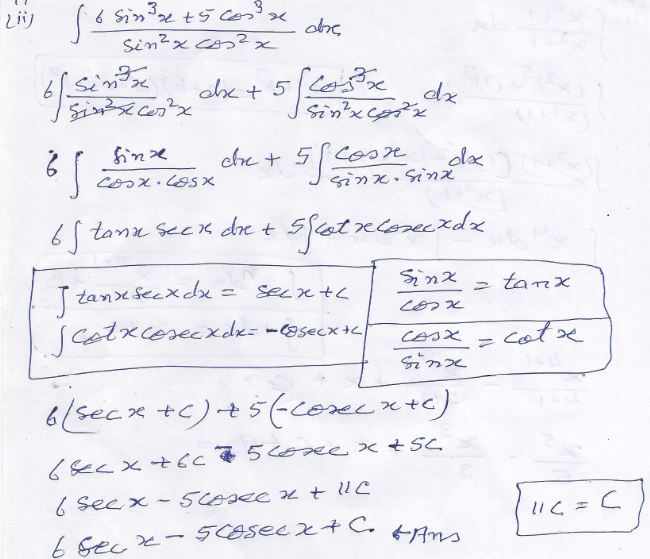 ii) ∫ (6 sin³x + 5 cos³x) / (sin²x cos²x) dx
6∫ sin³x / (sin²x cos²x) dx + 5∫ cos³x / (sin²x cos²x) dx
6∫ sinx / (cosx . cosx) dx + 5∫ cosx / (sinx . sinx) dx
6∫ tanx secx dx + 5∫cotx cosecx dx
∫ tanx secx dx = secx + c
∫ cotx cosecx dx = -cosecx + c
sinx / cosx = tanx
cosx / sinx = cotx
6(secx + c) + 5(-cosecx + c)
6secx + 6c - 5cosecx + 5c
6secx - 5cosecx + 11c
11c = C
6secx - 5cosecx + C. ←Ans